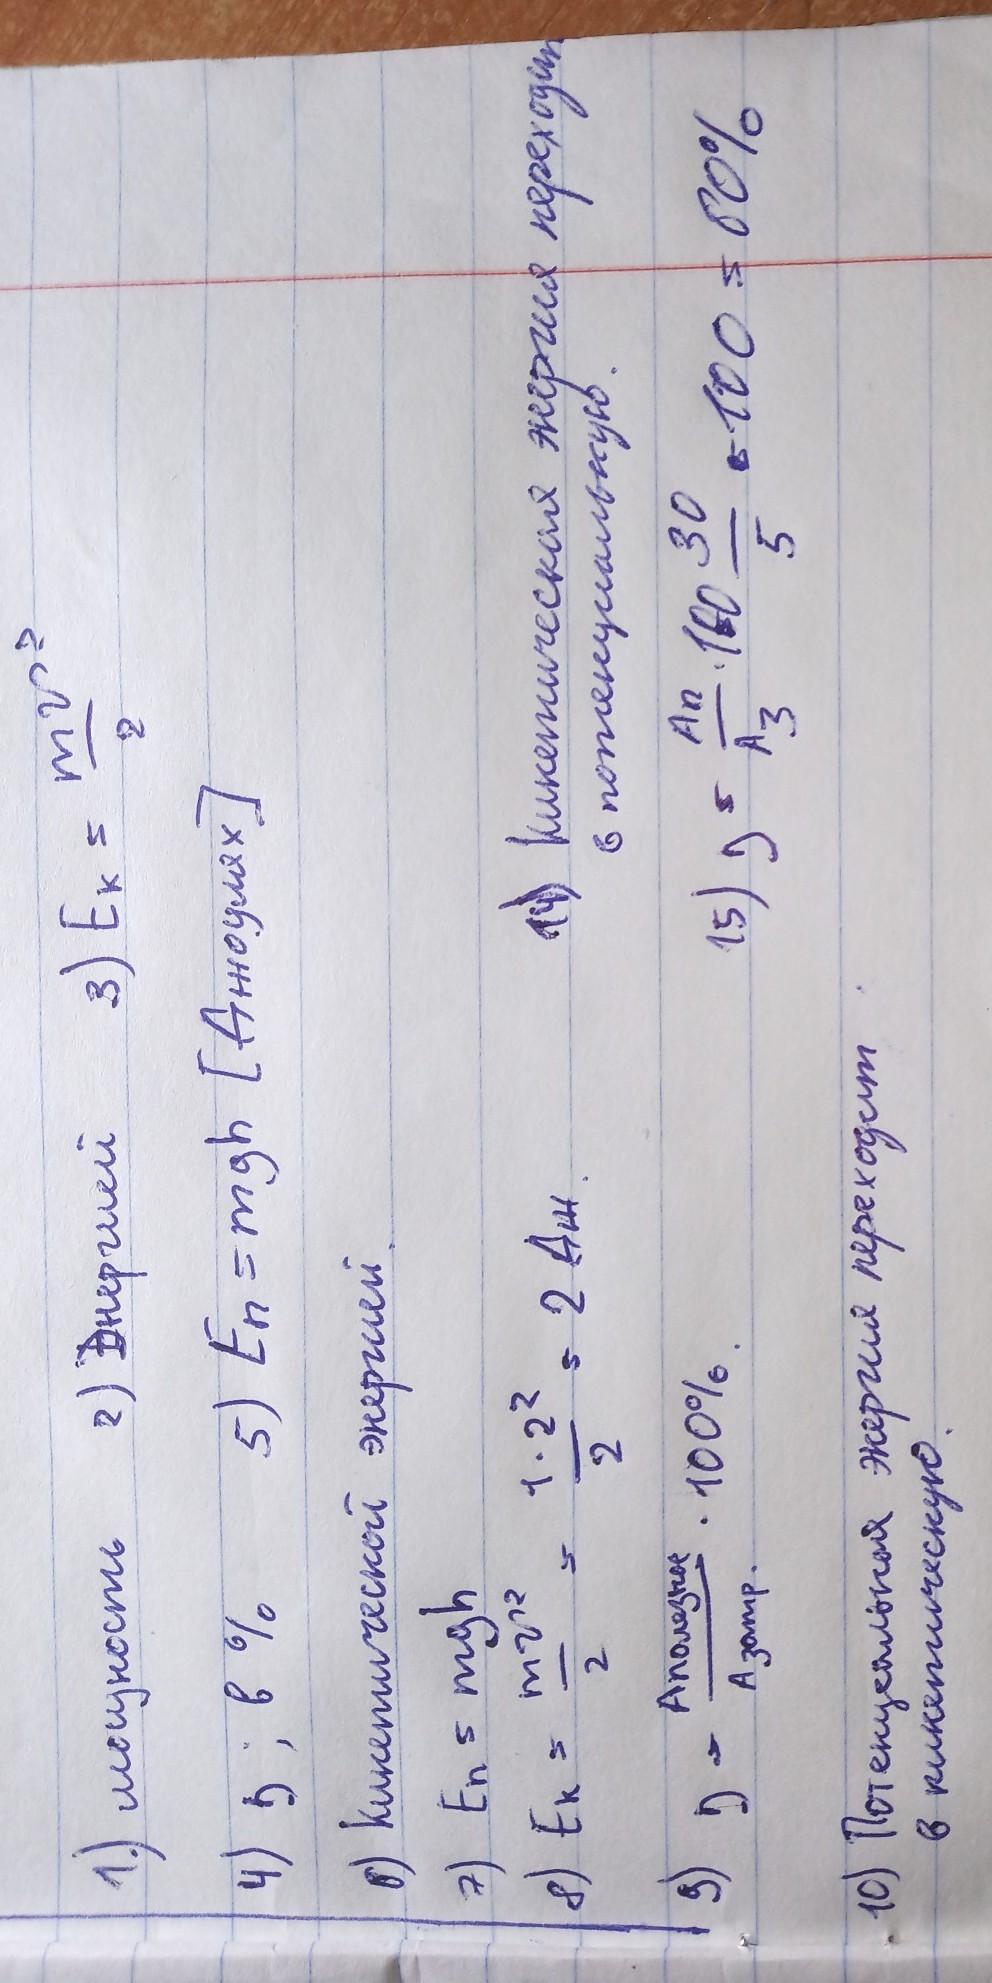 1.) мощность 2) Энергией 3) Eк = mv²/2
4) η; в % 5) Eп = mgh [Джоулях]
6) Кинетической энергией.
7) Eп = mgh
8) Eк = mv²/2 = 1·2²/2 = 2 Дж.
9) η = Aполезное/Aзатр. · 100%.
10) Потенциальная энергия переходит
в кинетическую.
14) Кинетическая энергия переходит
в потенциальную.
15) η = Aп/Aз · 100 30/5 · 100 = 80%